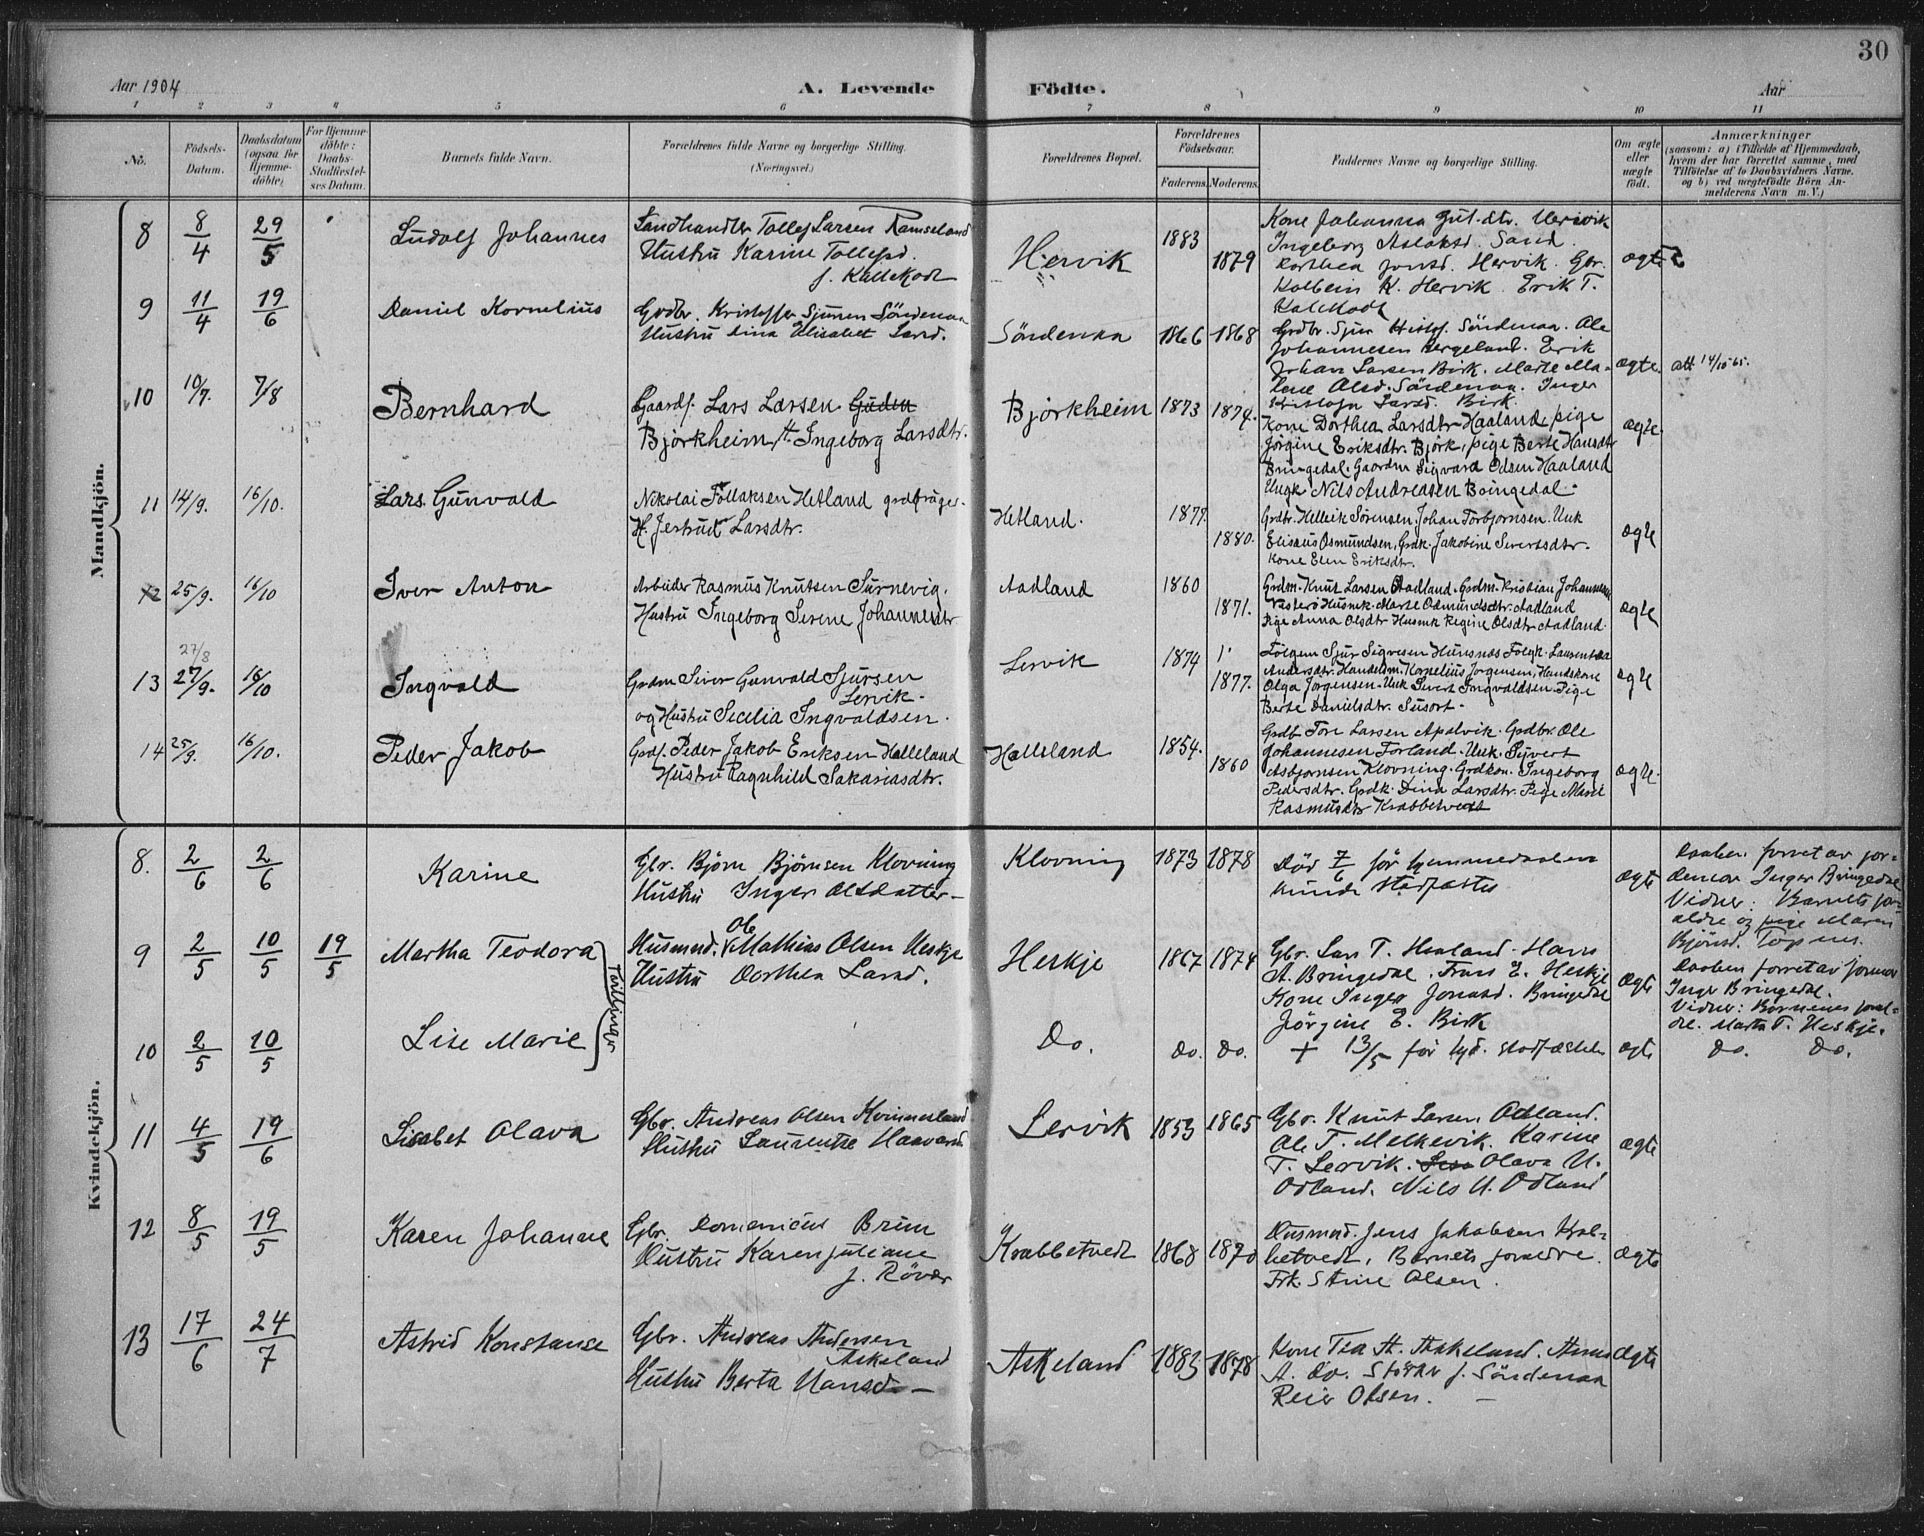 30
Aar 1904
A. Levende Födte.
Aar
1 2 3 4 5 6 7 8 9 10 11
No.
Födsels-Datum.
Daabsdatum (ogsaa for Hjemme-döbte)
For Hjemme-döbte: Daabs-Stadfæstel-ses Datum.
Barnets fulde Navn.
Forældrenes fulde Navne og borgerlige Stilling. (Næringsvei.)
Forældrenes Bopæl.
Forældrenes Födselsaar.
Faderens. Moderens.
Faddernes Navne og borgerlige Stilling.
Om ægte eller uægte födt.
Anmærkninger
(saasom: a) i Tilfælde af Hjemmedaab, hvem der har forrettet samme, med Tilföielse af to Daabsvidners Navne. og b) ved uægtefödte Börn An-melderens Navn m. V.)
Mandkjön.
8 8/4 29/5 Ludolf Johannes
Sandhandler Tollef Larsen Ramseland
Hustru Karine Tollefsd.
f. Kallekodt
Hervik 1883 1879
Kone Johanna Gut.dtr. Hervik
Ingeborg Aslaksd. Sand.
Dorthea Jonsd. Hervik. Gbr.
Kolbein K. Hervik. Erik T.
ægte
9 11/4 19/6 Daniel Kornelius
Grdbr. Kristoffer Sjursen Söndenaa
Hustru Lina Elisabet Larsd.
Söndenaa 1866 1868
Grdbr. Sjur Kristof. Söndenaa. Ole
Johannesen Bergeland. Erik
Johan Larsen Birk. Marte Ma-
lene Olsd. Söndenaa. Inger
Larsd. Birk.
ægte. att 14/10-65.
10 10/7. 7/8 Bernhard
Gaardf. Lars Larsen Guden
Björkheim H. Ingeborg Larsdtr.
Björkheim 1873 1874.
Kone Dorthea Larsdtr Haaland, pige
Jörgine Eriksdtr. Björk, pige Berte Hansdtr
Bringedal. Gaardm Sigvard Odsen Haaland
Ungk Nils Andreasen Bringedal.
ægte.
11 14/9. 16/10. Lars Gunvald
Nikolai Tollaksen Hetland grdbruger.
H. Jertrud Larsdtr.
Hetland. 1877. 1880.
Grdbr. Hellvik Sörensen. Johan Torbjornsen. Unk
Elisæus Osmundsen, Grdk. Jakobine Sivertsdtr.
Kone Elen Eriksdtr.
ægte
12 25/9. 16/10 Iver Anton
Arbeider Rasmus Knutsen Surnevig.
Hustru Ingeborg Serene Johannesdtr
Aadland 1860 1871.
Grdm. Knut Larsen Aadland. Grdm. Kristian Johannesen
Husmk. Marte Odmundsdtr. Aadland
Pige Anna Olsdtr Husmk Regine Olsdtr. Aadland.
ægte
27/8
13 27/9. 16/10 Ingvald
Grdm Siver Gunvald Sjursen
Lervik.
og Hustru Secelia Ingvaldsen.
Lervik 1874 1877.
Fölgem Sjur Sigvesen Hunsnes Folgk. Laurentsa
Andersdtr. Handelsm. Kornelius Jorgensen, Handskone
Olga Jorgensen. Unk Sivert Ingvaldsen. Pige
Berte Danielsdtr. Susort.
ægte
14 25/9. 16/10. Peder Jakob
Grdf. Peder Jakob Eriksen Halleland
Hustru Ragnhild Sakariasdtr.
Halleland 1854. 1860
Grdb Tore Larsen Apelvik. Grdbr. Ole
Johannesen Forland. Unk. Syvert
Asbjornsen Klovning. Grdkon. Ingeborg
Pedersdtr. Grdk. Dina Larsdtr. Pige Marie
Rasmusdtr Krabbetvedt
ægte.
Kvindekjön.
8. 2/6 2/6 Karine
Gbr. Björn Björnsen Klovning
Hustru Inger Olsdatter
Klovning 1873 1878
Död 7/6 för hjemmedaaben
kunde stadfæstes
ægte
Daaben forret av jor-
demor Inger Bringedal
Vidner: Barnets for-
ældre og pige Maren
Björnsd.
9 2/5 10/5 19/5 Martha Teodora
Tvillinger
Husmnd. Ole Mathias Olsen Heskje
Hustru Dorthea Larsd.
Heskje 1867 1874
Gbr. Lars T. Haaland. Hans
A. Bringedal. Frans E. Heskje
Kone Inger Jonasd. Bringedal
Jörgine E. Birk
ægte
Daaben forret av jormor
Inger Bringedal.
Vidner: Börnenes foræl-
dre. Marta T. Heskje.
10 2/5 10/5 Lise Marie
Do. Do. Do.
+ 13/5 för hjd. stadfæstelse
ægte Do. Do.
11 4/5 19/6 Lisabet Olava
Gbr. Andreas Olsen Kvinnesland
Hustru Laurentse Haavard
Lervik 1853 1865
Gbr. Knut Larsen Odland.
Ole T. Melkevik. Karine
T. Lervik. Lisa Olava N.
Odland. Nils N. Odland
ægte
12 8/5 19/5 Karen Johanne
Gbr. Domenicus Brim
Hustru Karen Juliane
f. Rövær
Krabbetvedt 1868 1870
Husmnd. Jens Jakobsen Krab-
betvedt, Barnets forældre.
Frk. Stine Olsen.
ægte
13 17/6 24/7 Astrid Konstanse
Gbr. Andreas Andersen
Askeland
Hustru Berta Hansd.
Askeland 1883 1878
Kone Tea A. Askeland. Anna
A. Do. f. Söndenaa
Reier Olsen.
ægte